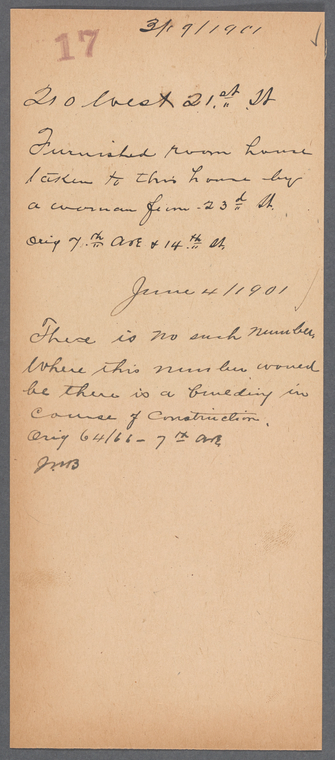 3/9/1901
17
210 West 21.st St
Furnished room house
taken to this house by
a woman from 23d St.
Orig 7.th Ave & 14.th St.
June 4/1901
There is no such number,
Where this number would
be there is a building in
course of construction.
Orig 64/66 - 7th Ave.
JMB